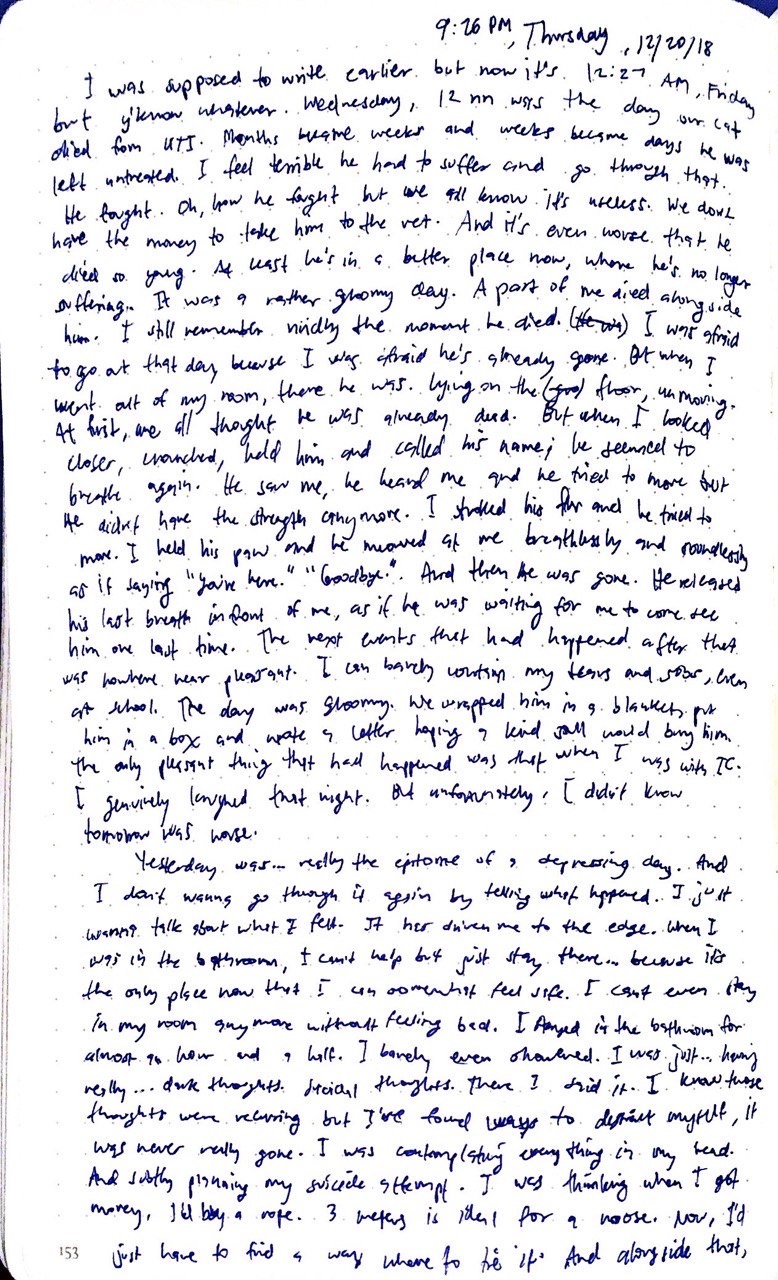 9:26 PM, Thursday, 12/20/18
I was supposed to write earlier but now it's 12:27 AM, Friday
but y'know whatever. Wednesday, 12 nn was the day our cat
died from UTI. Months became weeks and weeks became days he was
left untreated. I feel terrible he had to suffer and go through that.
He fought. Oh, how he fought but we all know it's useless. We don't
have the money to take him to the vet. And it's even worse that he
died so young. At least he's in a better place now, where he's no longer
suffering. It was a rather gloomy day. A part of me died alongside
him. I still remember vividly the moment he died. (He was) I was afraid
to go out that day because I was afraid he's already gone. But when I
went out of my room, there he was. Lying on the floor, unmoving.
At first, we all thought he was already dead. But when I looked
closer, crouched, held him and called his name; he seemed to
breathe again. He saw me, he heard me and he tried to move but
He didn't have the strength anymore. I stroked his fur and he tried to
move. I held his paw and he meowed at me breathlessly and soundlessly
as if saying "You're here." "Goodbye.". And then he was gone. He released
his last breath infront of me, as if he was waiting for me to come see
him one last time. The next events that had happened after that
was nowhere near pleasant. I can barely contain my tears and sobs, even
at school. The day was gloomy. We wrapped him in a blanket, put
him in a box and wrote a letter hoping a kind soul would bury him.
The only pleasant thing that had happened was that when I was with IC.
I genuinely laughed that night. But unfortunately, I didn't know
tomorrow was worse.
Yesterday was... really the epitome of a depressing day. And
I don't wanna go through it again by telling what happened. I just
wanna talk about what I felt. It has driven me to the edge. When I
was in the bathroom, I can't help but just stay there... because it's
the only place now that I can somewhat feel safe. I can't even stay
in my room anymore without feeling bad. I stayed in the bathroom for
almost an hour and a half. I barely even showered. I was just... having
really... dark thoughts. Suicidal thoughts. There I said it. I know those
thoughts were recurring but I've found ways to distract myself, it
was never really gone. I was contemplating everything in my head.
And subtly planning my suicide attempt. I was thinking when I got
money, Now, I'd
just have to find a way And alongside that,
153